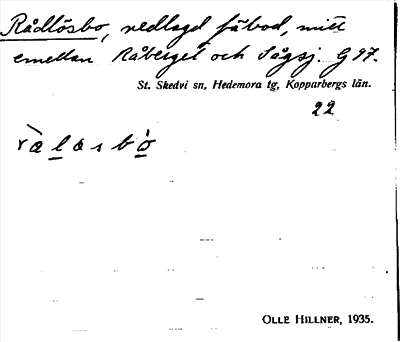 Rådlösbo, nedlagd fäbod, mitt
emellan Råberget och Sågsj. G 97.
St. Skedvi sn, Hedemora tg, Kopparbergs län.
22
OLLE HILLNER, 1935.